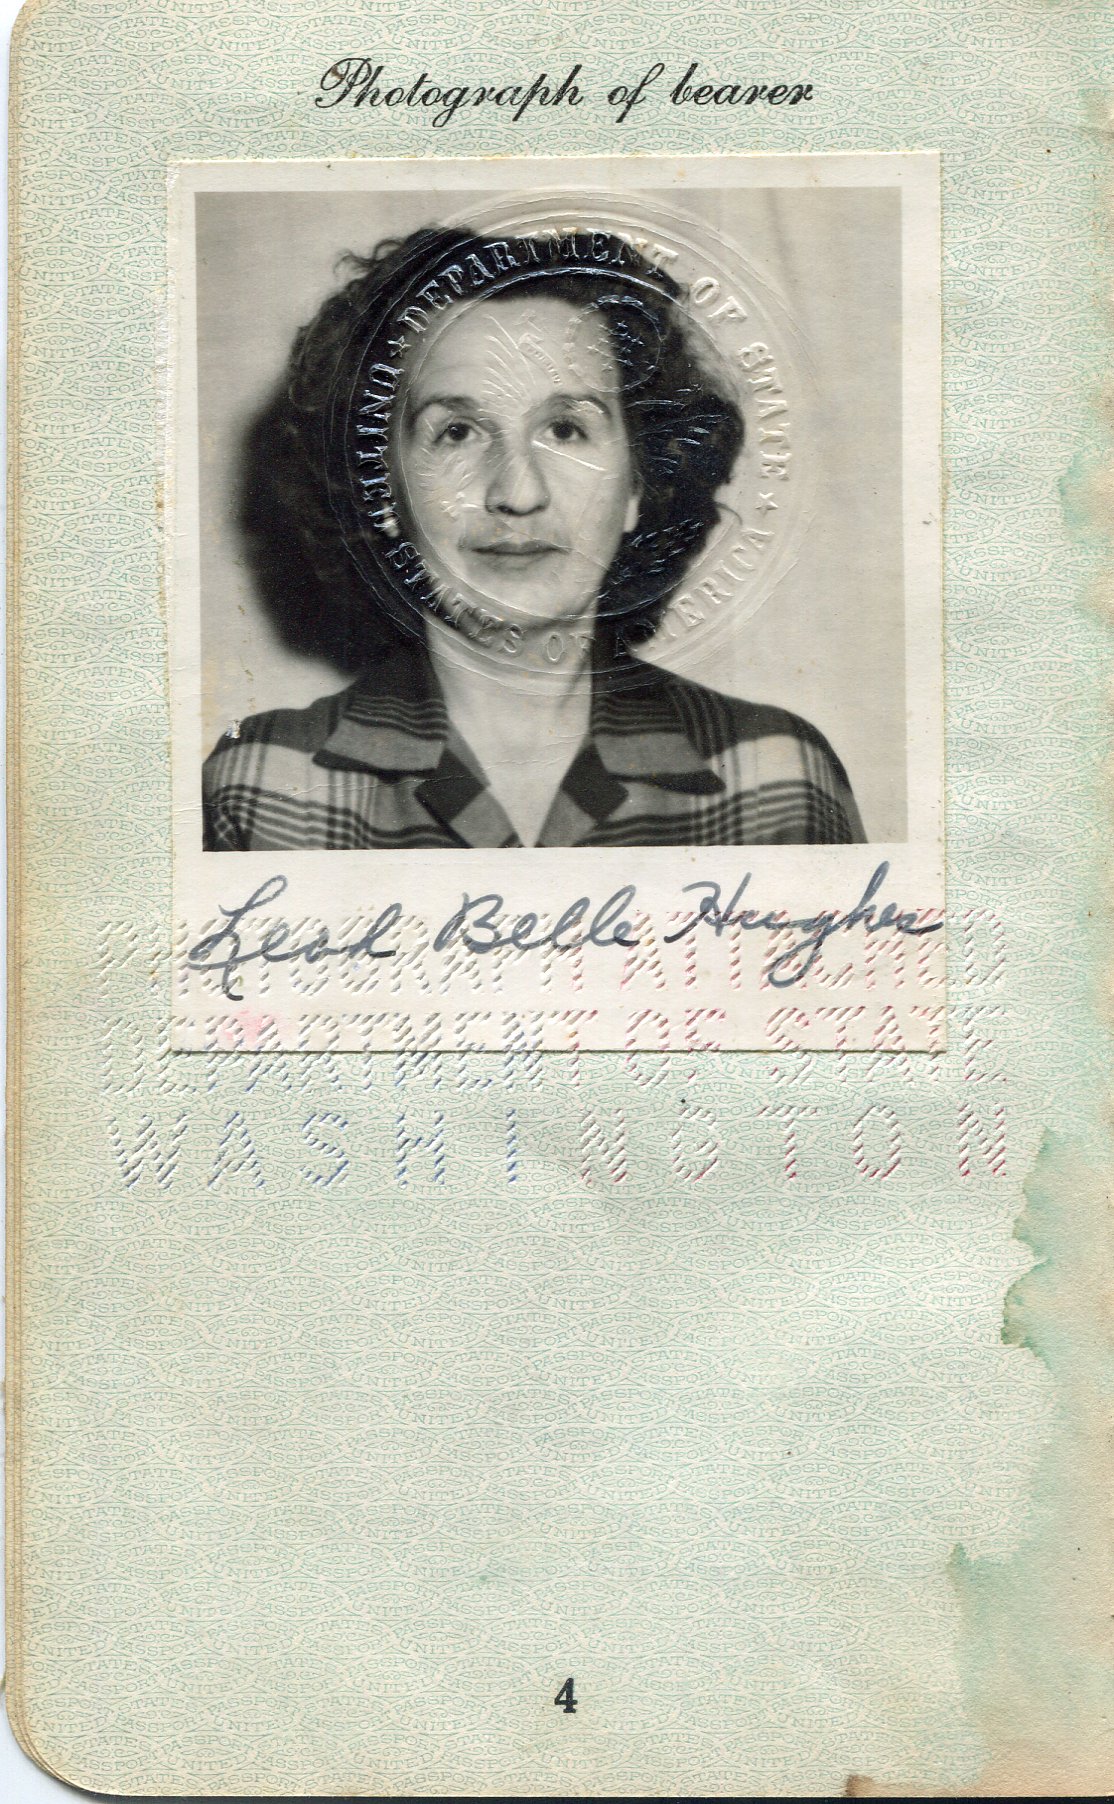 Photograph of bearer
UNITED STATES OF AMERICA ★ DEPARTMENT OF STATE ★
Leah Belle Hughes
PHOTOGRAPH ATTACHED
DEPARTMENT OF STATE
WASHINGTON
4